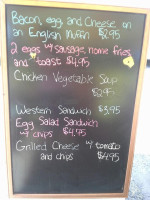 Bacon, egg, and Cheese on
an English Muffin $2.95
2 eggs w/ sausage, home fries
and toast $4.95
Chicken Vegetable Soup
$2.95
Western Sandwich $3.95
Egg Salad Sandwich
w/ chips $4.95
Grilled Cheese w/ tomato
and chips $4.95